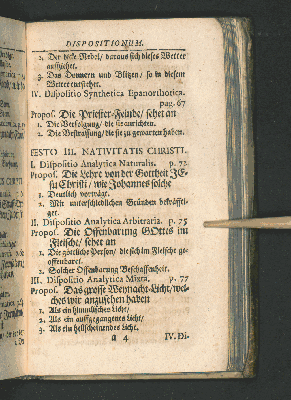 DISPOSITIONUM.
2. Der dicke Nebel / daraus sich dieses Wetter
auffziehet.
3. Das Donnern und Blitzen / so in diesem
Wetter entstehet.
IV. Dispositio Synthetica Epanorthotica.
pag. 67
Propos. Die Priester-Feinde / sehet an
1. Die Verfolgung / die sie ausrichten.
2. Die Bestraffung / die sie zu gewarten haben.
FESTO III. NATIVITATIS CHRISTI.
I. Dispositio Analytica Naturalis. p. 72
Propos. Die Lehre von der Gottheit JE-
su Christi / wie Johannes solche
1. Deutlich vorträgt.
2. Mit unterschiedlichen Gründen bekräffti-
get.
II. Dispositio Analytica Arbitraria. p. 75
Propos. Die Offenbarung GOttes im
Fleische / sehet an
1. Die göttliche Person / die sich im Fleische ge-
offenbaret.
2. Solcher Offenbarung Beschaffenheit.
III. Dispositio Analytica Mixta. p. 77
Propos. Das grosse Weynacht-Licht / wel-
ches wir anzusehen haben
1. Als ein himmlisches Licht /
2. Als ein auffgegangenes Licht /
3. Als ein hellscheinendes Licht.
a 4 IV. Di-